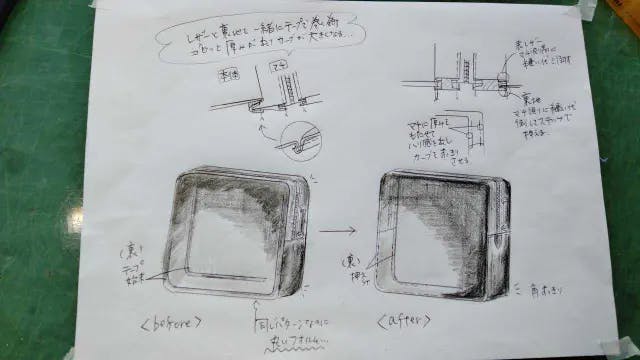 レザーと裏地を一緒にテープで巻くと
コロッと厚みが出てカーブが大きくなる…
本体
マチ
表レザー
マチ切り前に
縫い代を消す
裏地
マチ周りに縫い代
倒してステッチで
押える
マチに厚みを
もたせて
ハリ感を出し
カーブをきっちり
させる
(裏)
テープ
始末
(裏)
押え
角きっちり
<before>
同じパターンなのに
丸いフォルム…
<after>